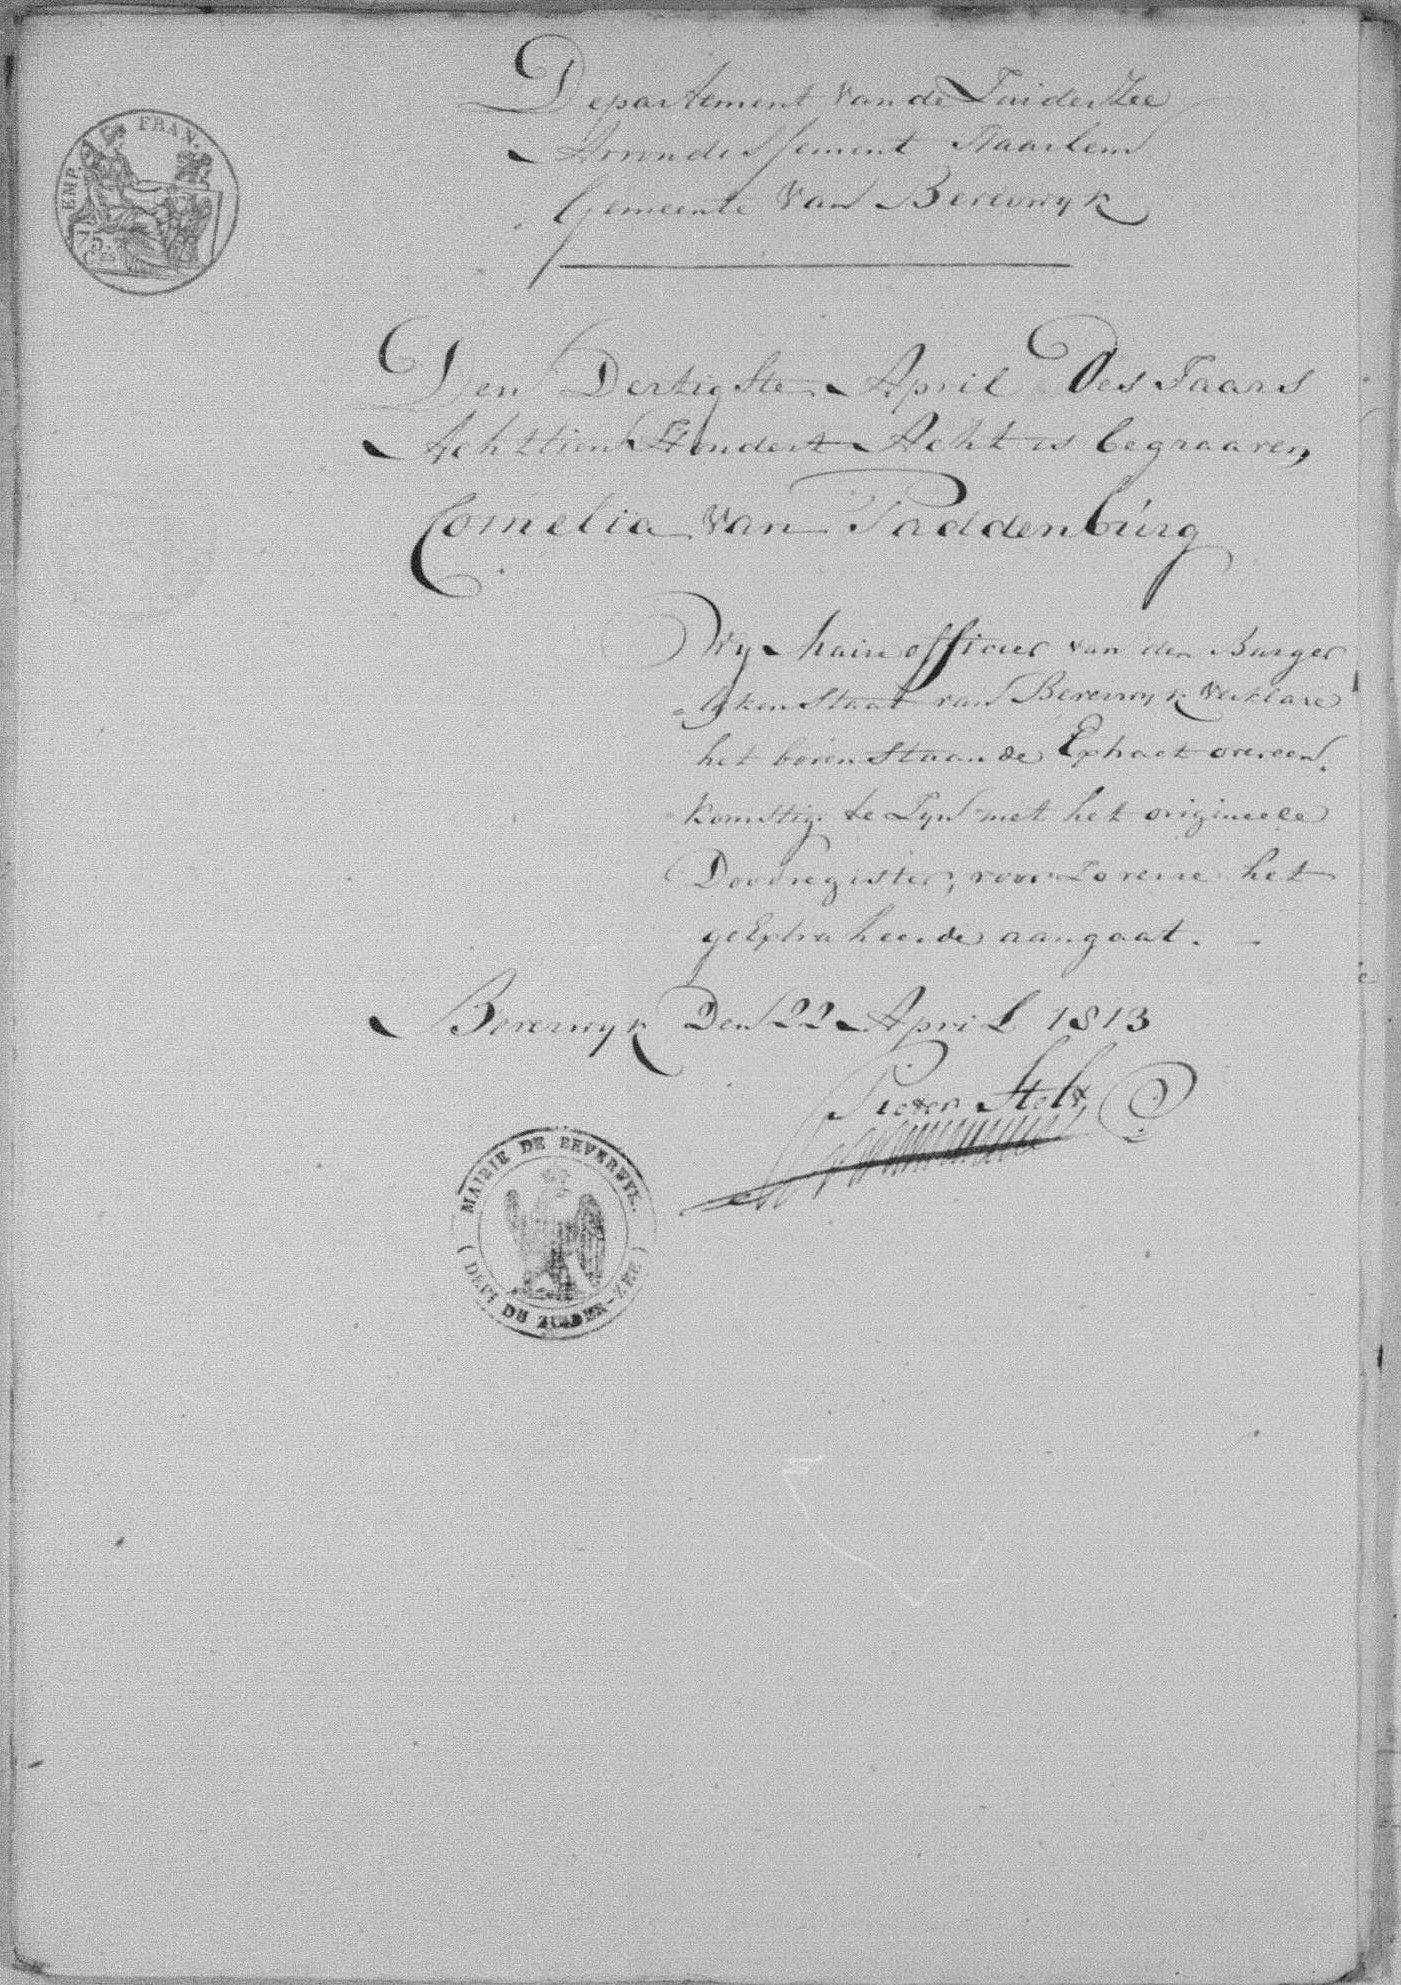 EMP. FRAN.
75.
CES
Departement Van de Zuider Zee
Arrondissement Haarlem
Gemeente Van Beverwyk
Den Dertigste April Des Jaars
Achttien Hondert Acht is begraaven
Cornelia Van Paddenbúrg
Wy Maire officier van den Burger
lyken Staat van Beverwyk Verklare
het bovenstaande Extract overeen
komstig te Zyn met het origineele
Doodregister, voor Zoverre het
geExtraheerde aangaat.
Beverwyk Den 22 April 1813
Pieter
MAIRIE DE BEVERWYK.
(DEPT DU ZUIDER-ZEE)